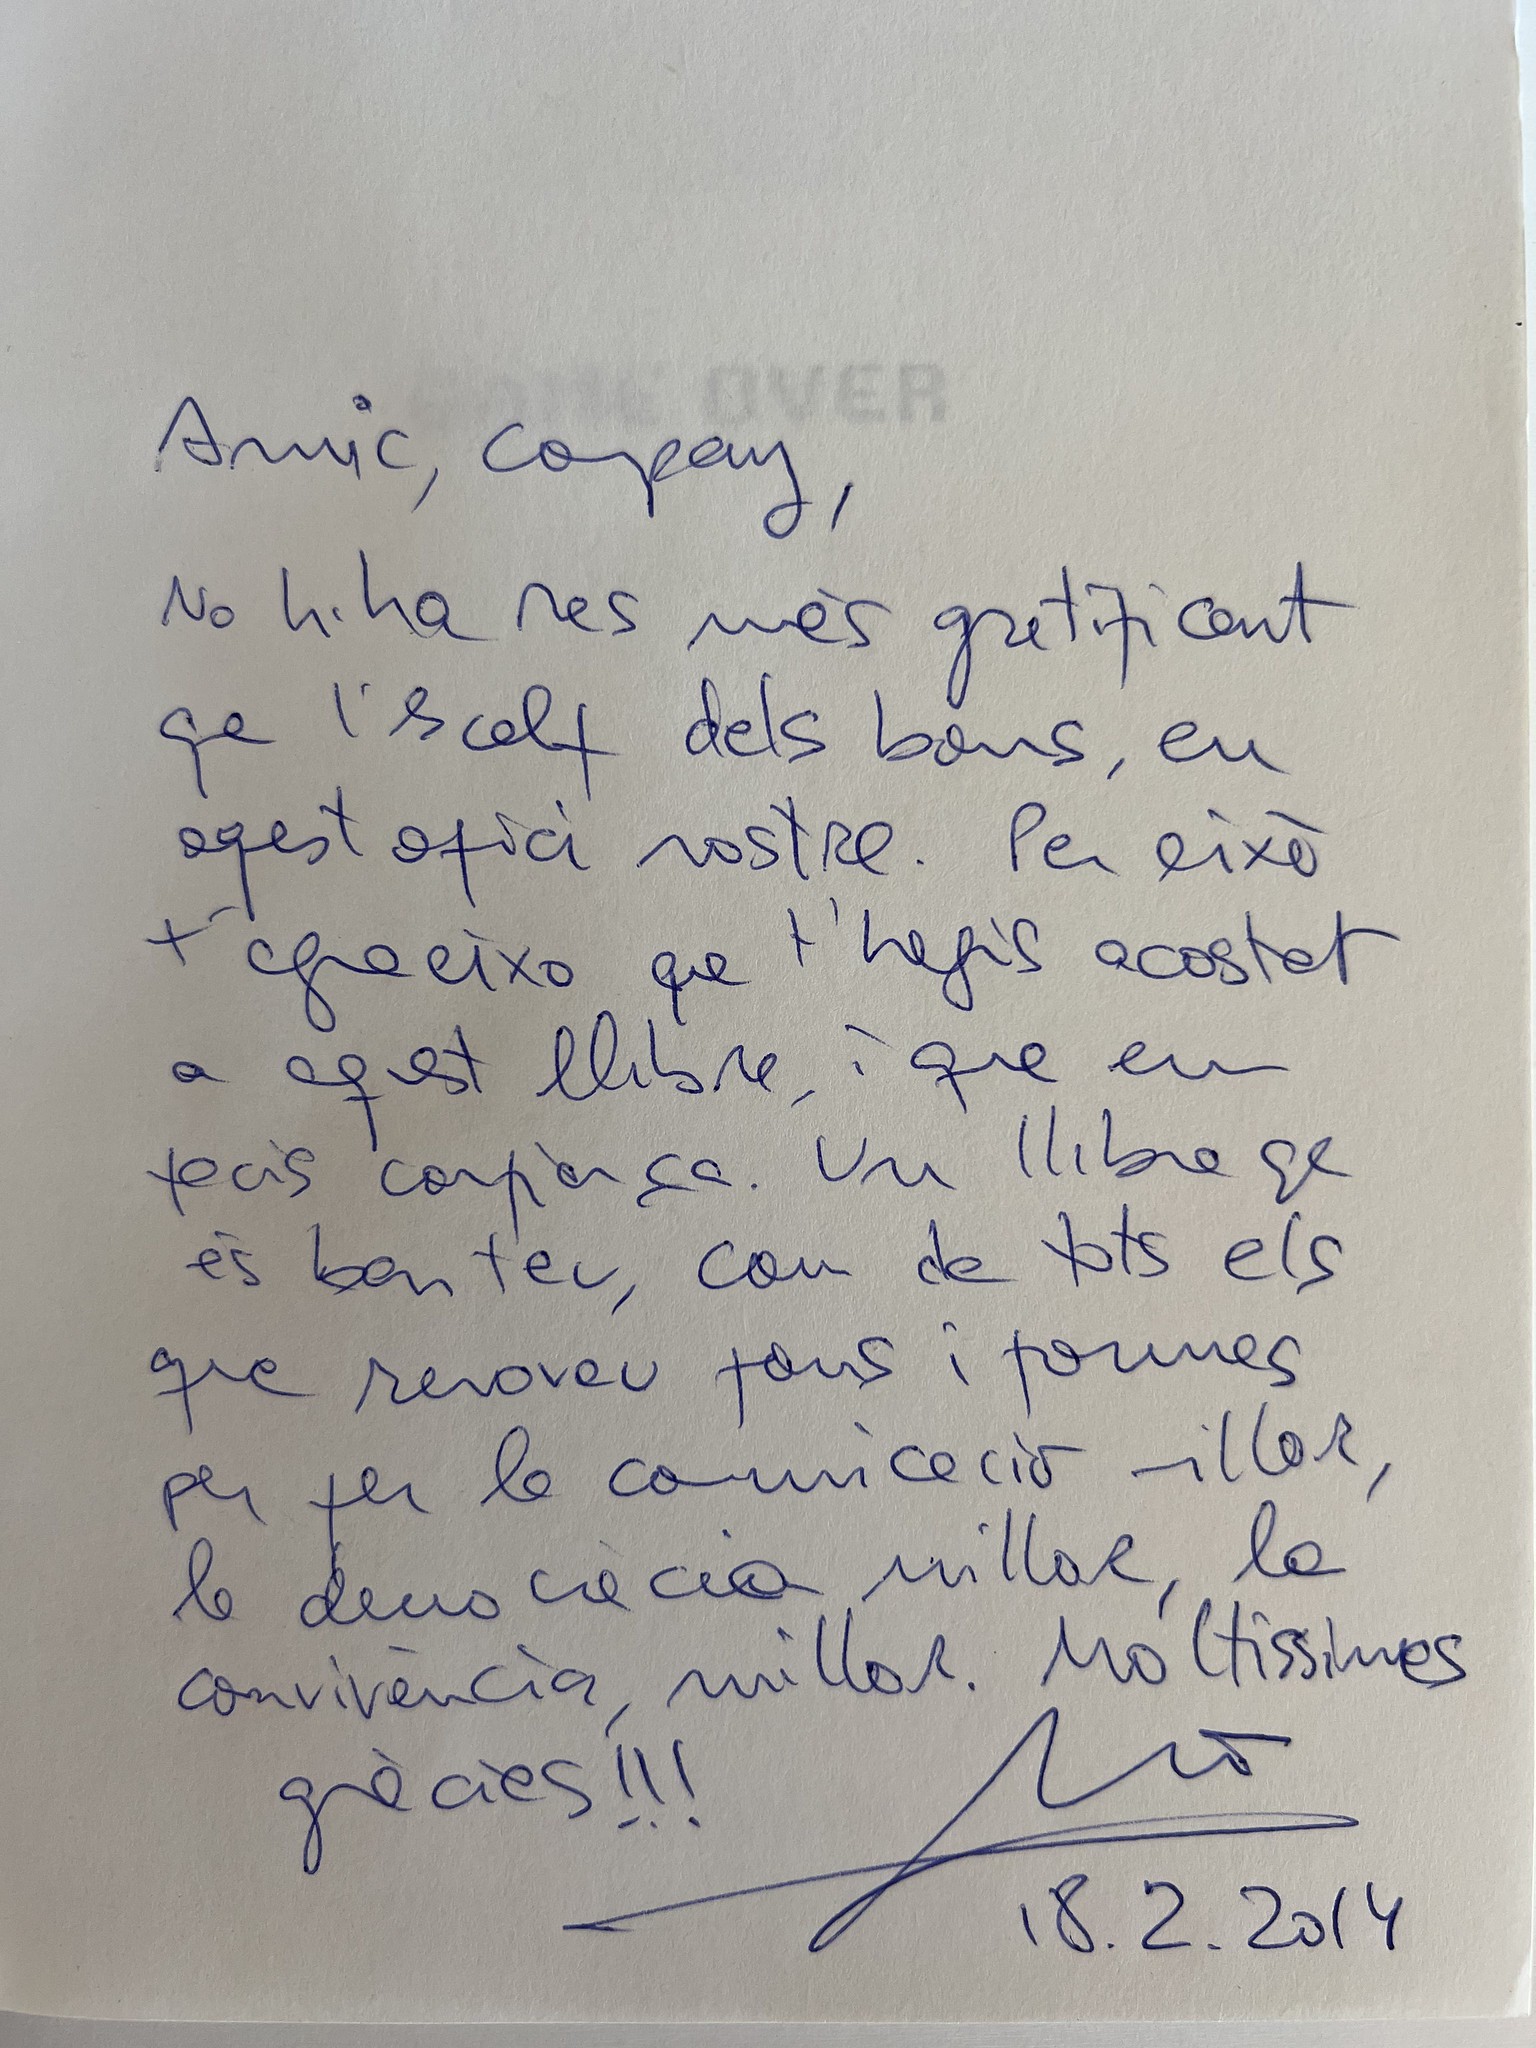 GAME OVER
Amic, company,
No hi ha res més gratificant
que l'escalf dels bons, en
aquest ofici nostre. Per això
t'agraeixo que t'hagis acostat
a aquest llibre, i que em
facis confiança. Un llibre que
és ben teu, com de tots els
que renoveu fons i formes
per fer la comunicació millor,
la democràcia millor, la
convivència, millor. Moltíssimes
gràcies!!!
18.2.2014